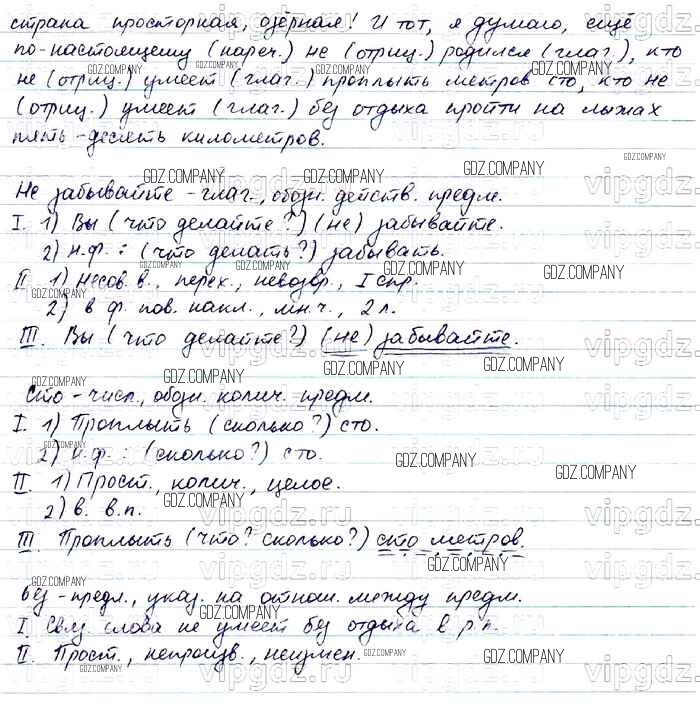 страна просторная, озёрная! И тот, я думаю, ещё
по-настоящему (нареч.) не (отриц.) родился (глаг.), кто
не (отриц.) умеет (глаг.) проплыть метров сто, кто не
(отриц.) умеет (глаг.) без отдыха пройти на лыжах
пять-десять километров.
Не забывайте - глаг., обозн. действ. предм.
I. 1) Вы (что делайте?) (не) забывайте.
2) н.ф.: (что делать?) забывать.
II. 1) Несов. в., перех., невозвр., I спр.
2) в ф. пов. накл., мн. ч., 2 л.
III. Вы (что делайте?) (не) забывайте.
Сто - числ., обозн. колич. предм.
I. 1) Проплыть (сколько?) сто.
2) н.ф.: (сколько?) сто.
II. 1) Прост., колич., целое.
2) в. в.п.
III. Проплыть (что? сколько?) сто метров.
Без - предл., указ. на отнош. между предм.
I. Связ. слова не умеет без отдыха в р.п.
II. Прост., непроизв., неизмен.